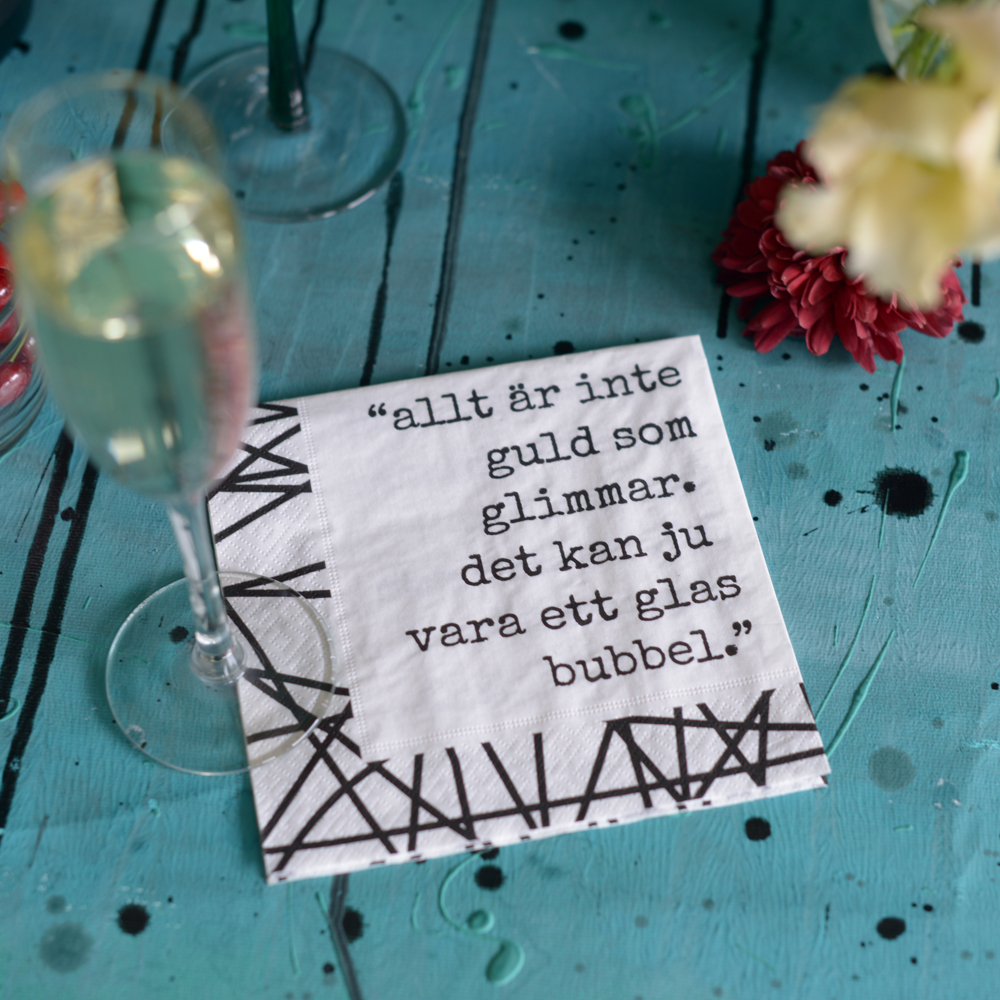 “allt är inte
guld som
glimmar.
det kan ju
vara ett glas
bubbel.”